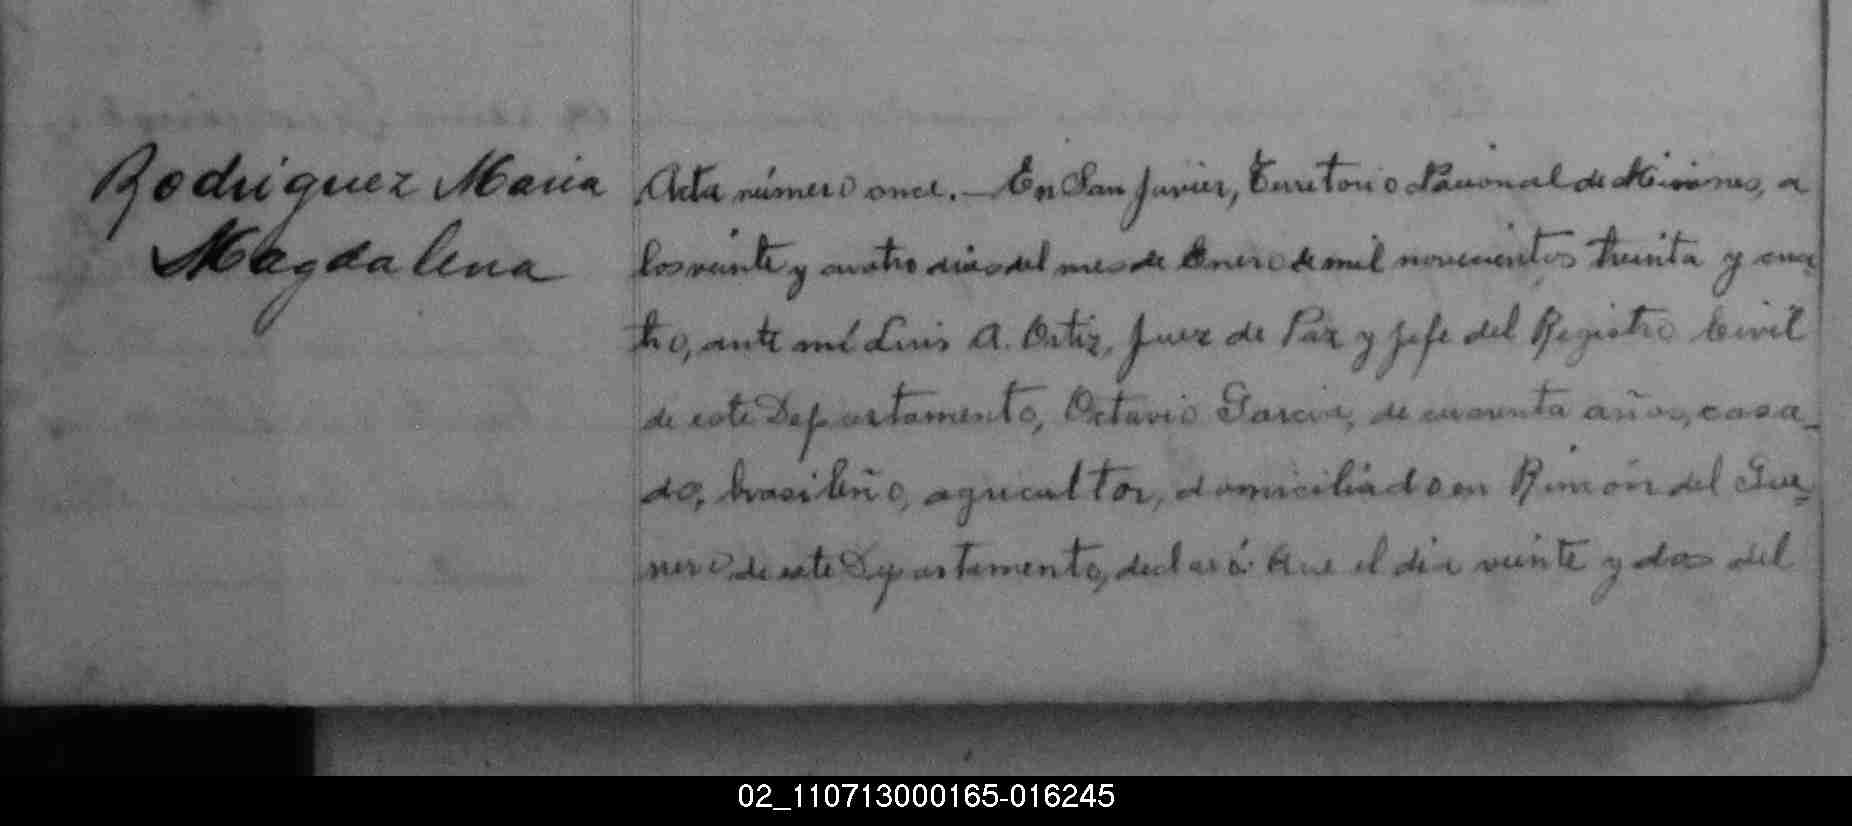 Rodriguez Maria
Magdalena
Acta número once. — En San Javier, Territorio Nacional de Misiones, a
los veinte y cuatro dias del mes de Enero de mil novecientos treinta y cua
tro, ante mí Luis A. Ortiz, Juez de Paz y Jefe del Registro Civil
de este Departamento, Octavio Garcia, de cuarenta años, casa_
do, brasileño, agricultor, domiciliado en Rincón del
nero de este Departamento, declaró: Que el dia veinte y dos del
02_110713000165-016245